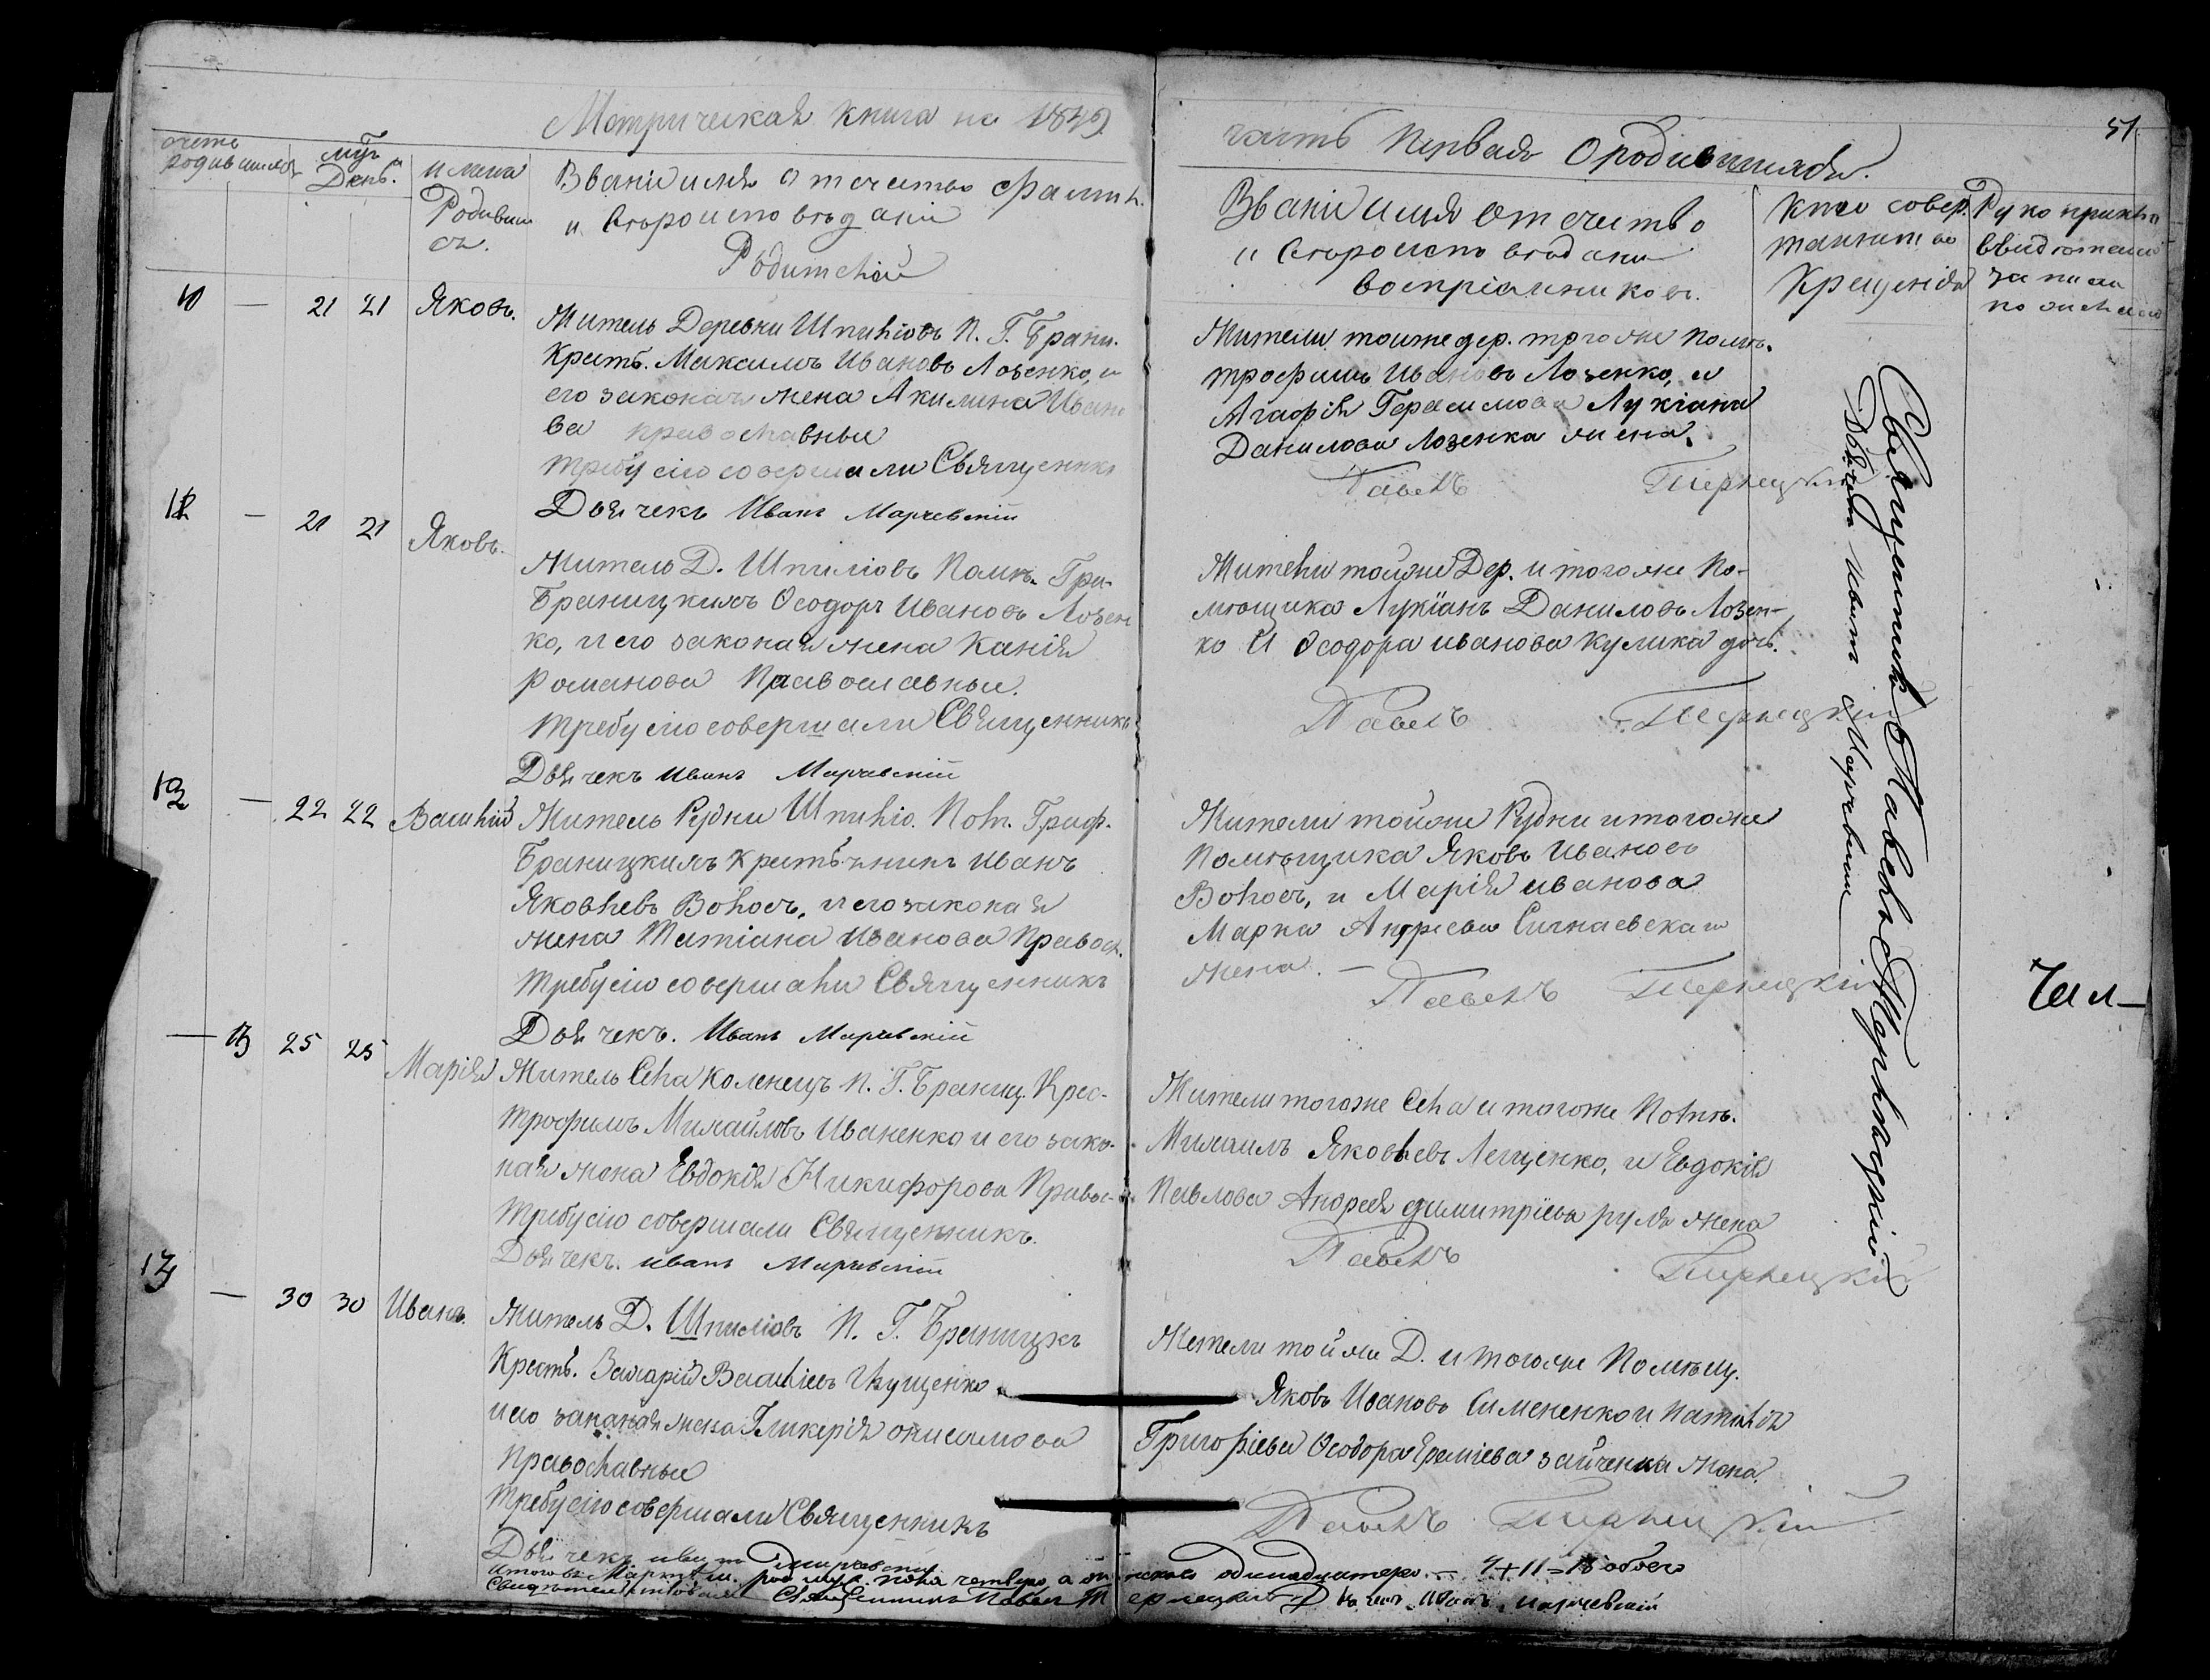 Метрическая книга на 1849
часть первая О родившихся.
51
счетъ родившихся
мцъ и День.
имена Родивших съ.
Званiе имя отечество Фамил. и Вероисповеданiе Родителей
Званiе имя отечество и Вероисповеданiе воспрiемниковъ.
Кто совер. таинство Крещенiя
Руко прикла
записи по желанiю
10 — 21 21 Яковъ.
Житель Деревни Шпилiовъ П. Г. Брани.
Крест. Максимъ Ивановъ Лозенко, и
его законая жена Акилина Ивано
ва православныи
требу сiю совершали Священникъ
Дьячекъ Иванъ Марчевскiй
Жители тоиже дер. тогоже помѣ.
трофимъ Ивановъ Лозенко, и
Агафiя Герасимова Лукiана
Данилова Лозенка жена.
Павелъ Терлецкiй
— 21 21 Яковъ.
Житель Д. Шпилiовъ Помѣ. Гра.
Браницкихъ Ѳеодоръ Ивановъ Лозен
ко, и его законая жена Ксенiя
Романова Православныи.
требу сiю совершали Священникъ
Дьячекъ Иванъ Марчевскiй
Жители тойже Дер. и тогоже По-
мѣщика Лукiанъ Даниловъ Лозен-
ко и Ѳеодора иванова Кулика дочь.
Павелъ Терлецкiй
— 22 22 Василiй
Житель Рудни Шпилiо. Пом. Граф.
Браницкихъ Крестьянинъ Иванъ
Яковлевъ Волосъ, и его законая
жена Татiана Иванова Правосл.
требу сiю совершали Священникъ
Дьячекъ. Иванъ Марчевскiй
Жители тойже Рудни и тогоже
Помѣщика Яковъ Ивановъ
Волосъ, и Марiя иванова
Марка Андреева Сигнаевскаго
жена. —
Павелъ Терлецкiй
— 25 25 Марiя
Житель Села Коленецъ П. Г. Браниц. Крес-
трофимъ Михайловъ Иваненко и его зако-
ная жена Евдокiя Никифорова Правос-
требу сiю совершали Священникъ.
Дьячекъ. иванъ Марчевскiй
Жители тогоже Села и тогоже Помѣ.
Михаилъ Яковлевъ Лещенко, и Евдокiя
Павлова Андрея димитрiева руля жена
Павелъ Терлецкiй
— 30 30 Иванъ.
Житель Д. Шпилiовъ П. Г. Браницкъ
Крестъ. Захарiй Василiевъ Глущенко
и его законая жена Гликерiя онисимова
православныи
требу сiю совершали Священникъ
Дьячекъ иванъ Марчевскiй
Жители тойже Д. и тогоже Помѣщ.
Яковъ Ивановъ Симененко и
Григорiева Ѳеодора Еремiева зайченка жена.
Павелъ Терлецкiй
Священникъ Павелъ Терлецкiй
Дьячекъ Иванъ Марчевскiй
Итого въ Мартѣ м. род муж. пола четверо, а
одинадцатеро. — 4+11=15 обоего
Священникъ Павелъ Терлецкiй Дьячекъ Иванъ Марчевскiй